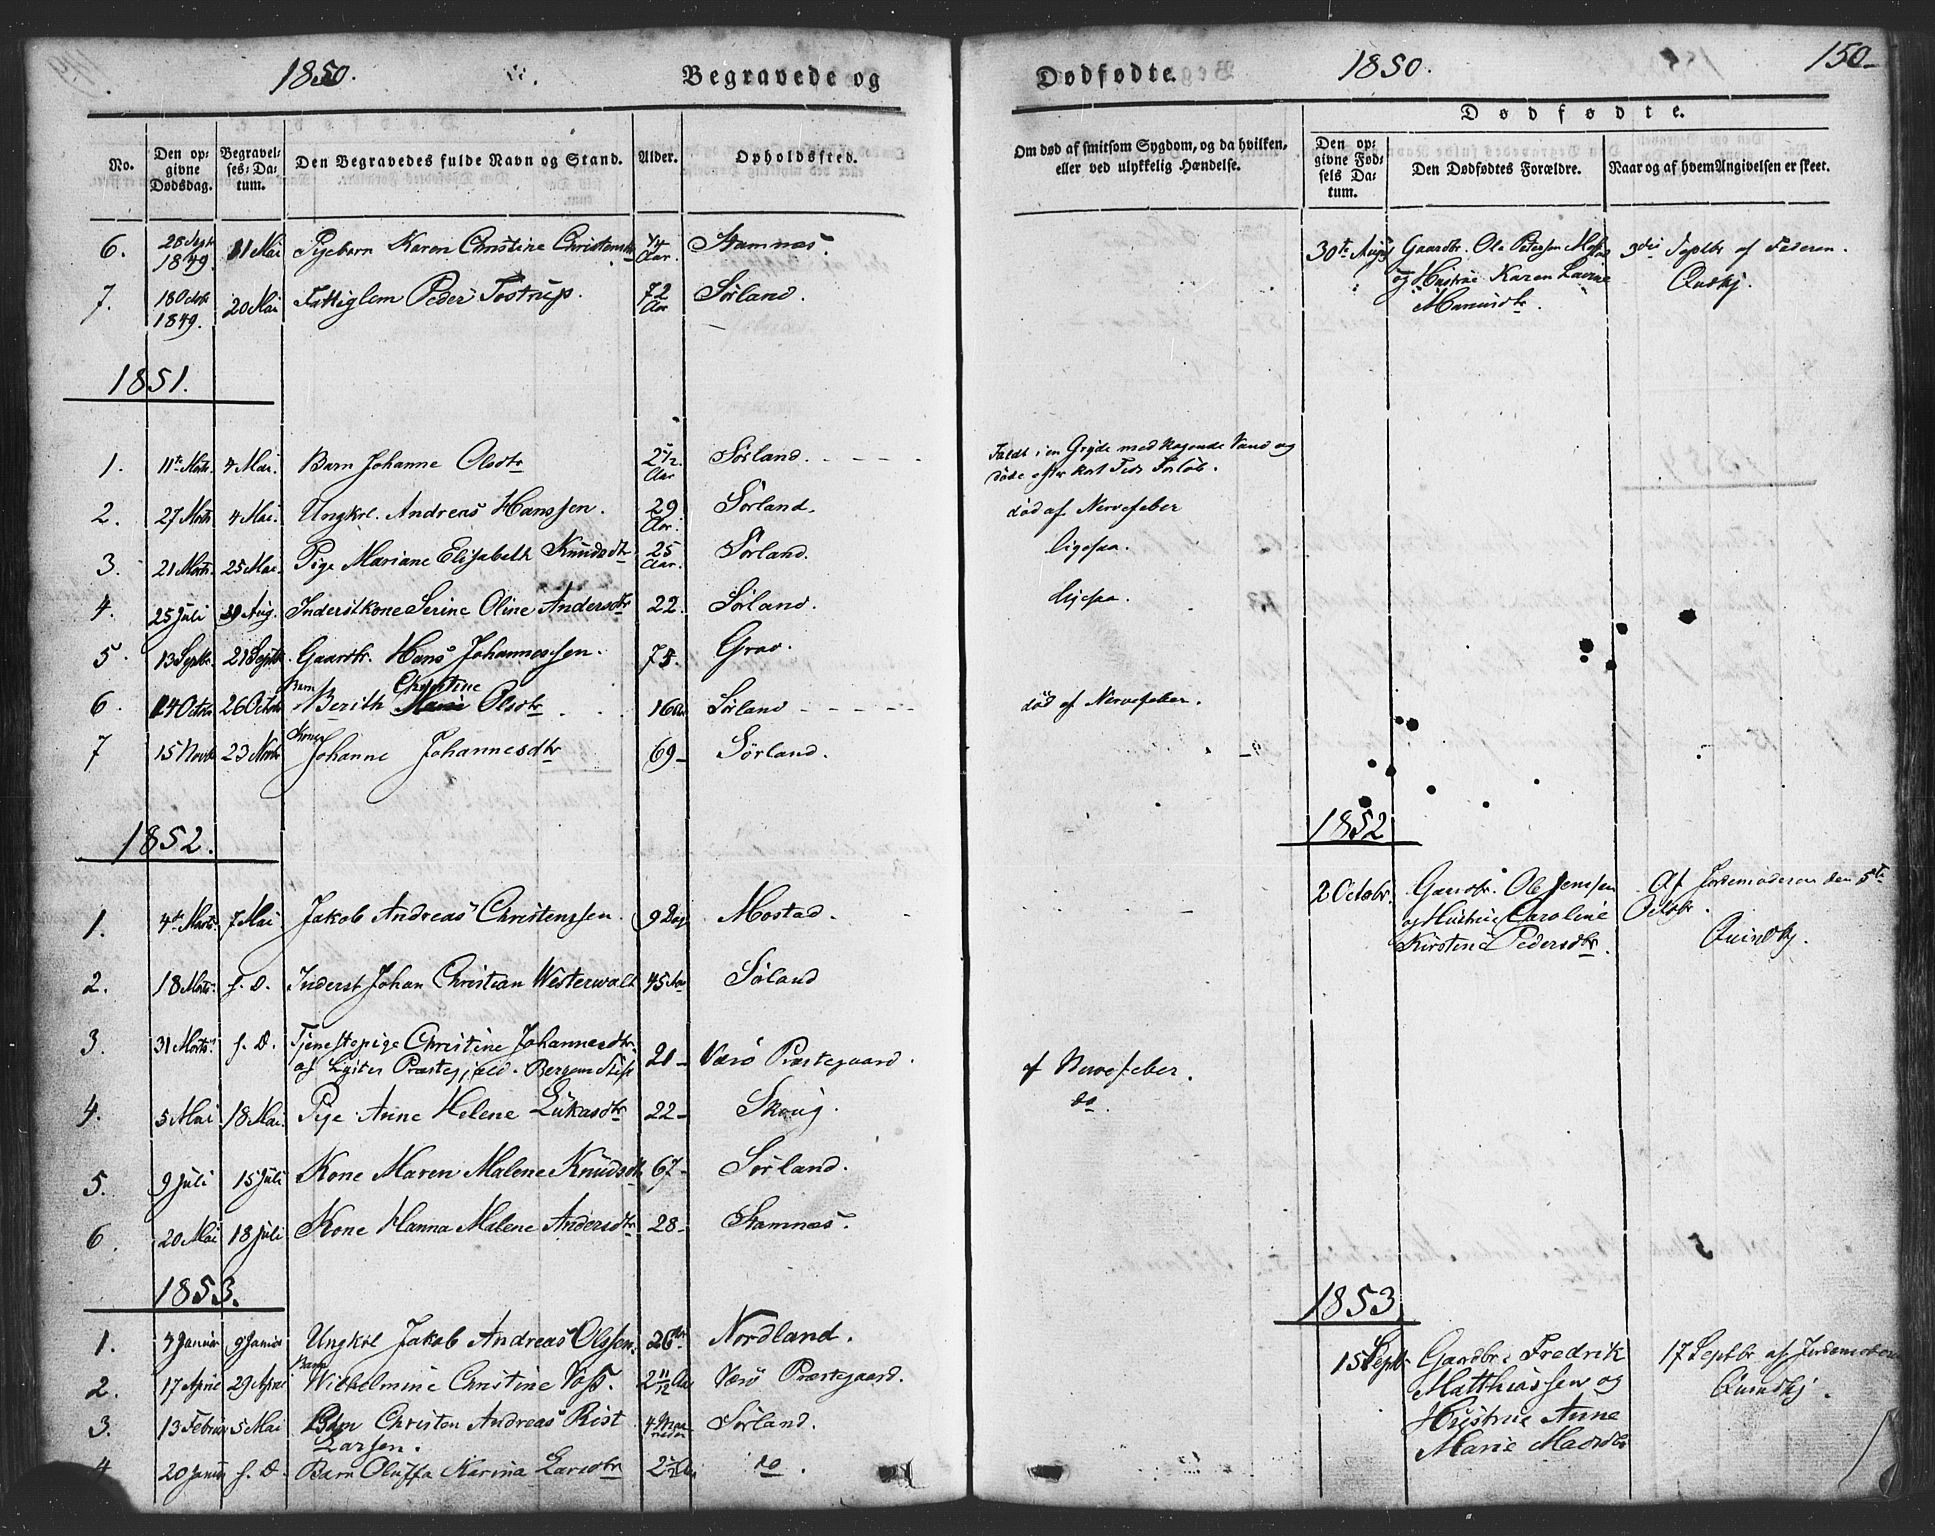 1850. Begravede og
No. Den opgivne Dødsdag. Begravelses-Datum. Den Begravedes fulde Navn og Stand. Alder. Opholdssted.
6. 28 Septr 1849. 11 Mai Pigebarn Karen Christine Stamnæs.
7. 18 Octobr 1849. 20 Mai Fattiglem Peder Tostrup. 72 Aar Sørland.
1851.
1. 11te Marts. 4 Mai. Barn Johanne Olsdtr 2 1/2 Aar Sørland.
2. 27 Marts 4 Mai. Ungkrl. Andreas Hanssen. 29 Aar. Sørland.
3. 21 Marts. 25 Mai. Pige Mariane Elisabeth Knudsdtr. 25 Aar. Sørland.
4. 25 Juli Aug. Inderstkone Serine Oline Andersdtr 22. Sørland.
5. 13 Septbr. 21 Septbr. Gaardbr. Hans Johannessen. Grav.
6. 14 Octobr 26 Octobr Barn Berith Christine Olsdtr 16 Sørland
7 15 Novbr 23 Novbr Kone Johanne Johannesdtr 69 Sørland.
1852.
1. 4de Marts. 7 Mai. Jakob Andreas Christenssen. 9 Dag Mostad.
2. 18 Marts. s. D. Inderst Johan Christian Westerwalt 45 Aar Sørland
3. 31 Marts s. D. Tjenestepige Christine Johannesdtr. 21 Værø Præstegaard.
af Præstegjæld. Bergens Stift
4. 5 Mai 18 Mai. Pige Anne Helene Lukasdtr 22 Skoug.
5. 9 Juli 15 Juli Kone Maren Malene Knudsdtr 67 Sørland.
6. 20 Mai 18 Juli Kone Hanna Malene Andersdtr. 28 Stamnæs.
1853.
1. 4 Januar 9 Januar Ungkrl Jakob Andreas Olssen. 26 Nordland.
2. 17 April 29 April Barn Wilhelmine Christine Voss. 2 11/12 Aar Værø Præstegaard.
3. 13 Februar 5 Mai Barn Christen Andreas Rist 4 Maaneder Sørland.
Larssen.
4 20 Januar s. D. Barn Oluffa Karina Larsdtr 2 1/2 Aar do
Dødfødte. 1850. 150
Dødfødte.
Om død af smitsom Sygdom, og da hvilken, eller ved ulykkelig Hændelse. Den opgivne Fødsels Datum. Den Dødfødtes Forældre. Naar og af hvem Angivelsen er skeet.
30te Aug Gaardbr. Ole Pedersen 3die Septbr af Faderen.
og Hustrue Karen
Faldt i en Gryde med kogende Vand og
døde efter kort Tids Forløb.
død af Nervefeber
ligesaa.
ligesaa.
død af Nervefeber.
1852
2 Octobr. Gaardbr. Ole Jenssen Af Jordemoderen den 5te
og Hustrue Caroline Octobr.
Kirstine Pedersdtr.
af Nervefeber.
do.
1853.
15 Septbr Gaardbr. Fredrik 17 Septbr af Jordemoderen
Matthiassen og
Hustrue Anne
Marie